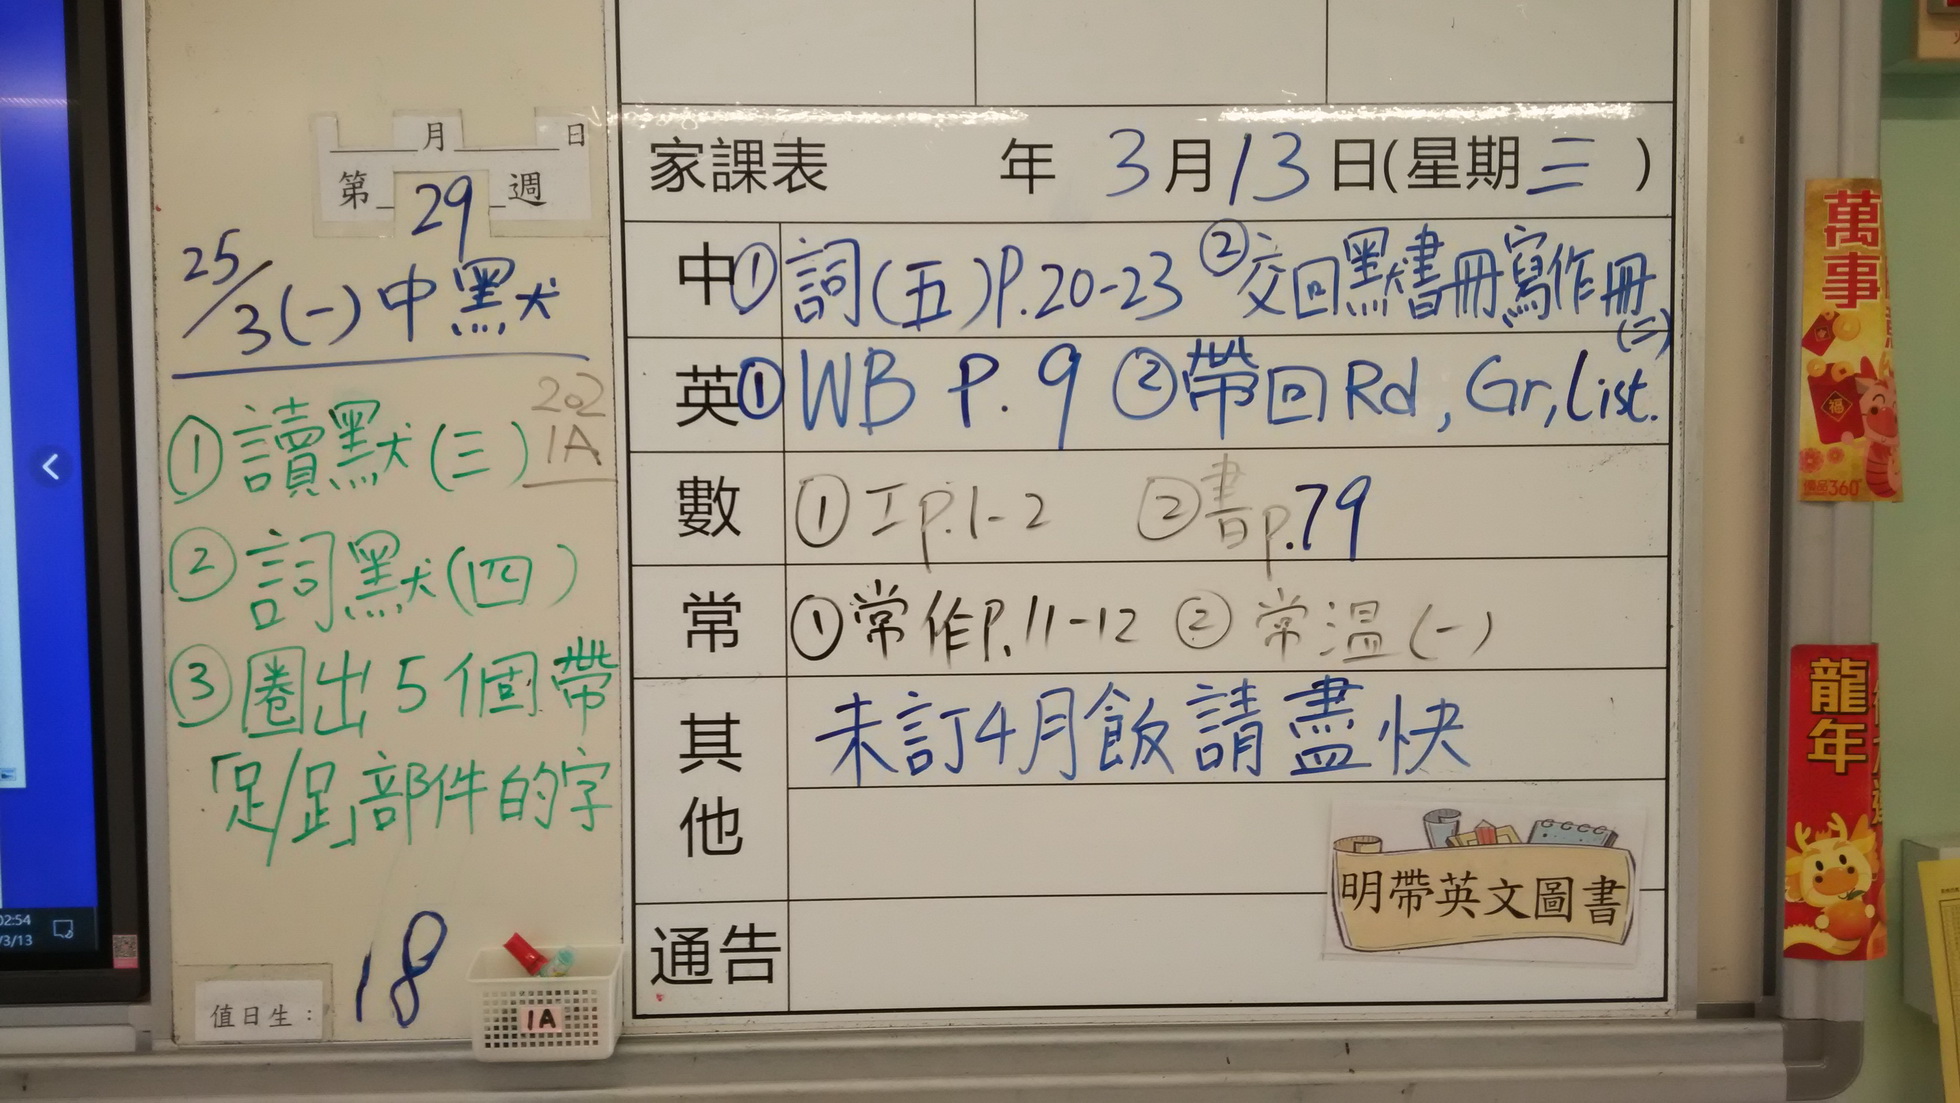 月 日
第 29 週
25/3(一)中默
①讀默(三)
202
1A
②詞默(四)
③圈出5個帶
「足/𧾷」部件的字
18
值日生：
1A
家課表 年 3月13日(星期三)
中 ①詞(五)P.20-23 ②交回默書冊寫作冊(二)
英 ①WB P.9 ②帶回Rd, Gr, List.
數 ①工p.1-2 ②書p.79
常 ①常作P.11-12 ②常溫(一)
其他 未訂4月飯請盡快
明帶英文圖書
通告
萬事
福
龍年
02:54
/3/13